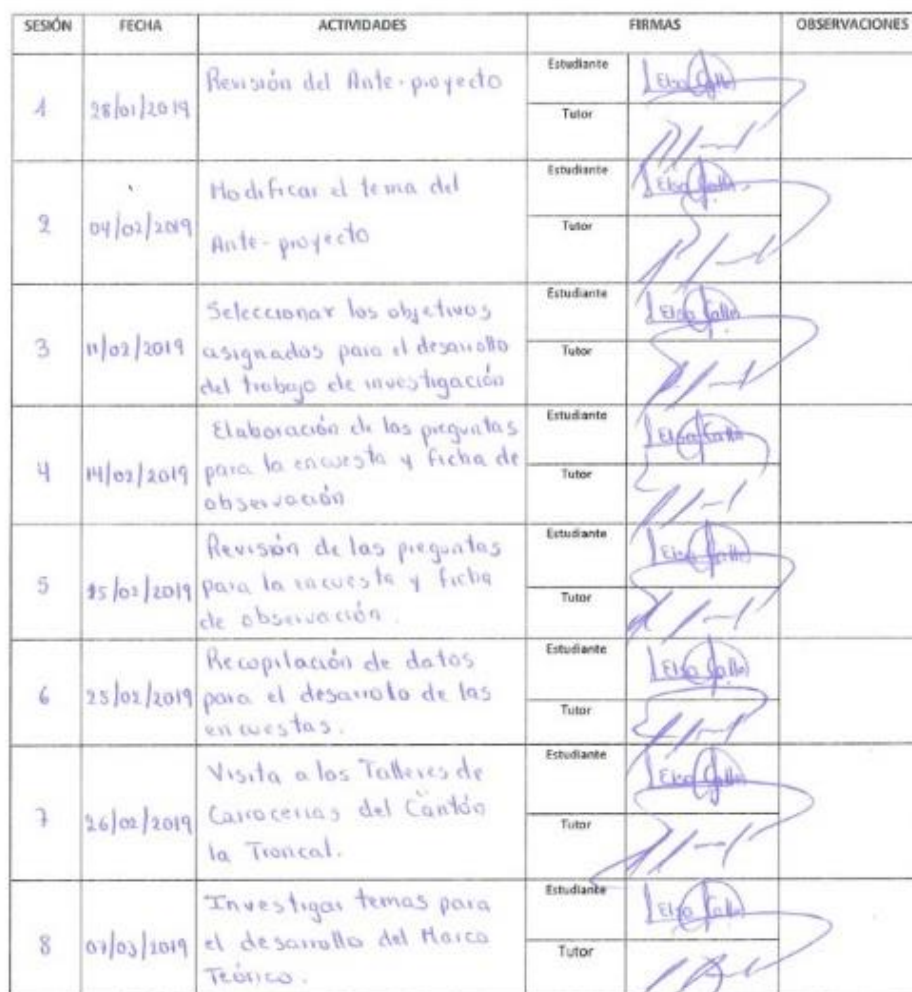 SESIÓN FECHA ACTIVIDADES FIRMAS OBSERVACIONES
1 28/01/2019 Revisión del Ante-proyecto
Estudiante
Tutor
2 04/02/2019 Modificar el tema del
Ante-proyecto
Estudiante
Tutor
3 11/02/2019 Seleccionar los objetivos
asignados para el desarrollo
del trabajo de investigación
Estudiante
Tutor
4 14/02/2019 Elaboración de las preguntas
para la encuesta y ficha de
observación
Estudiante
Tutor
5 15/02/2019 Revisión de las preguntas
para la encuesta y ficha
de observación.
Estudiante
Tutor
6 25/02/2019 Recopilación de datos
para el desarrollo de las
encuestas.
Estudiante
Tutor
7 26/02/2019 Visita a los Talleres de
Carrocerias del Cantón
la Troncal.
Estudiante
Tutor
8 07/03/2019 Investigar temas para
el desarrollo del Marco
Teórico.
Estudiante
Tutor